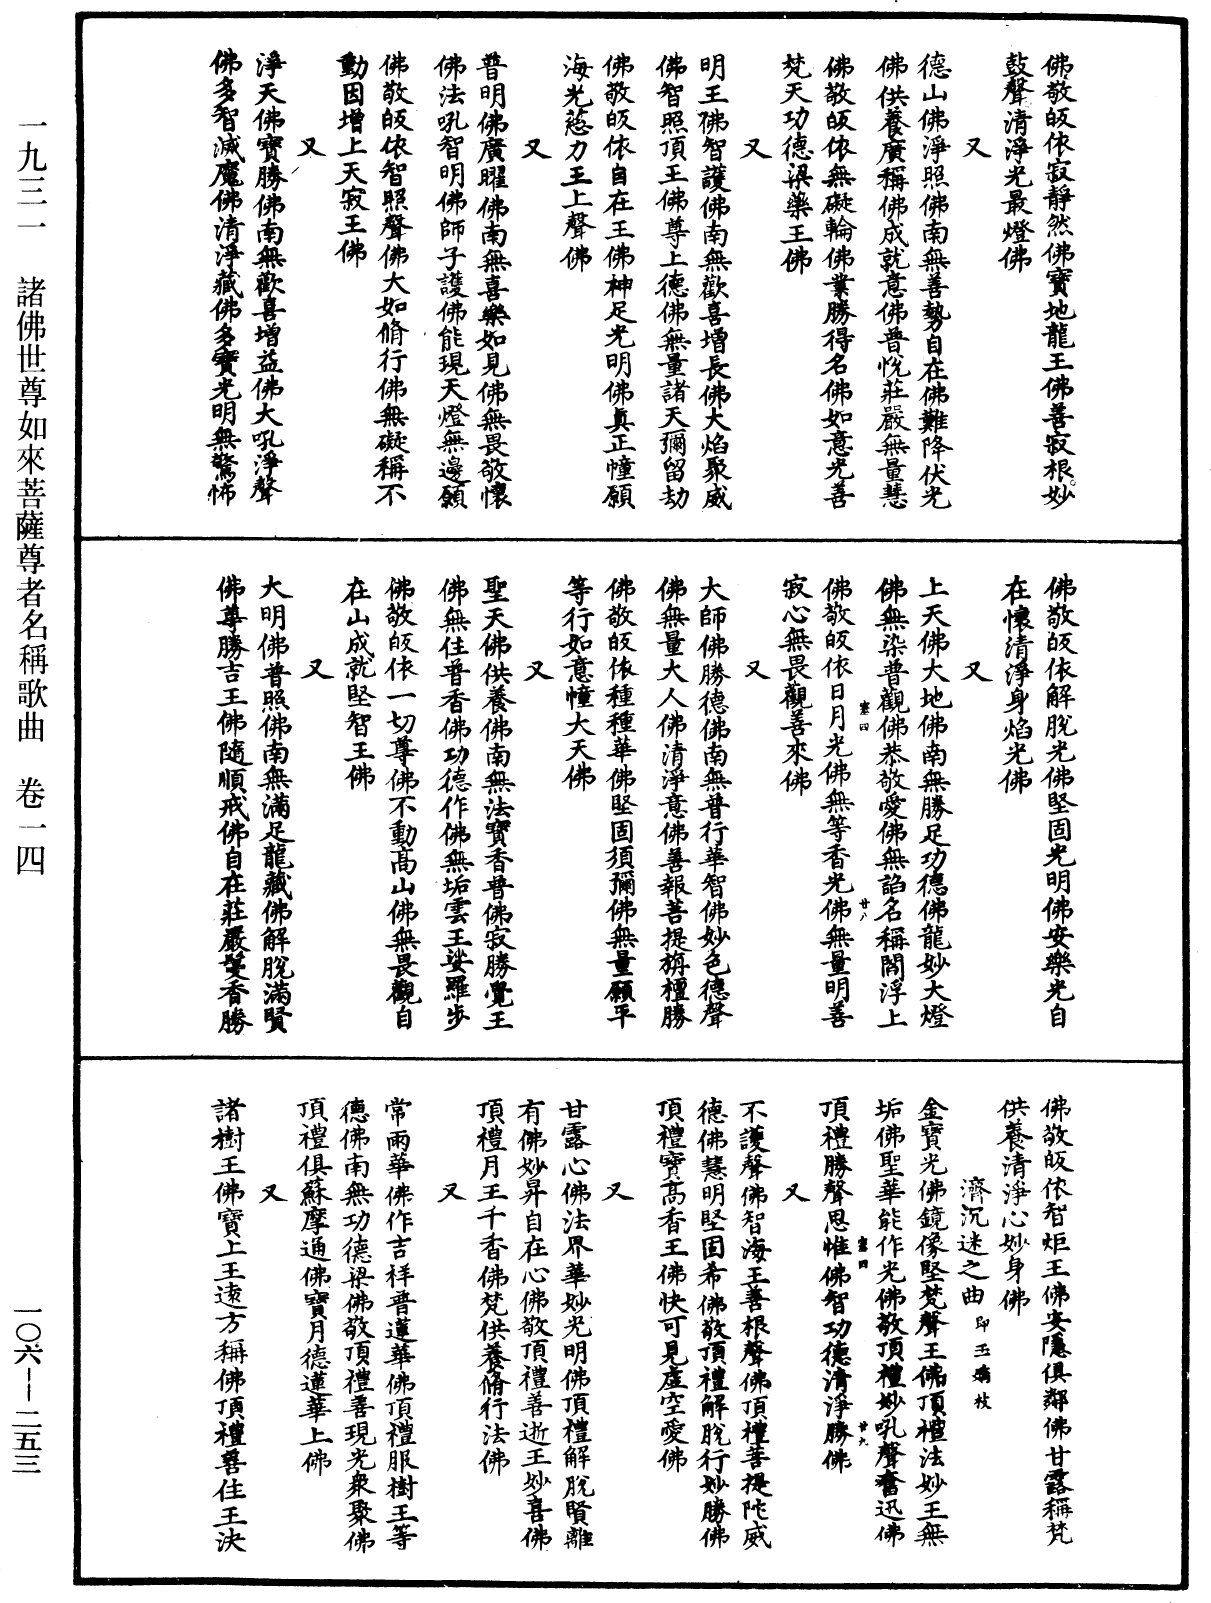 佛敬皈依寂靜然佛寶地龍王佛善寂根妙
鼓聲清淨光最燈佛
又
德山佛淨照佛南無善勢自在佛難降伏光
佛供養廣稱佛成就意佛普悅莊嚴無量慧
佛敬皈依無礙輪佛業勝得名佛如意光善
梵天功德梁樂王佛
又
明王佛智護佛南無歡喜增長佛大焰聚威
佛智照頂王佛尊上德佛無量諸天彌留劫
佛敬皈依自在王佛神足光明佛真正幢願
海光慈力王上聲佛
又
普明佛廣曜佛南無喜樂如見佛無畏敬懷
佛法吼智明佛師子護佛能現天燈無邊願
佛敬皈依智照聲佛大如脩行佛無礙稱不
動因增上天寂王佛
又
淨天佛寶勝佛南無歡喜增益佛大吼淨聲
佛多智滅魔佛清淨藏佛多寶光明無驚怖
佛敬皈依解脫光佛堅固光明佛安樂光自
在懷清淨身焰光佛
又
上天佛大地佛南無勝足功德佛龍妙大燈
佛無染普觀佛恭敬愛佛無諂名稱閻浮上
佛敬皈依日月光佛無等香光佛無量明善
寂心無畏觀善來佛
又
大師佛勝德佛南無普行華智佛妙色德聲
佛無量大人佛清淨意佛善報菩提旃檀勝
佛敬皈依種種華佛堅固須彌佛無量願平
等行如意幢大天佛
又
聖天佛供養佛南無法寶香普佛寂勝覺王
佛無住普香佛功德作佛無垢雲王娑羅步
佛敬皈依一切尊佛不動高山佛無畏觀自
在山成就堅智王佛
又
大明佛普照佛南無滿足龍藏佛解脫滿賢
佛尊勝吉王佛隨順戒佛自在莊嚴髮香勝
佛敬皈依智炬王佛安隱俱鄰佛甘露稱梵
供養清淨心妙身佛
濟沉迷之曲 即玉嬌枝
金寶光佛鏡像堅梵聲王佛頂禮法妙王無
垢佛聖華能作光佛敬頂禮妙吼聲奮迅佛
頂禮勝聲思惟佛智功德清淨勝佛
又
不護聲佛智海王善根聲佛頂禮菩提陀威
德佛慧明堅固希佛敬頂禮解脫行妙勝佛
頂禮寶高香王佛快可見虛空愛佛
又
甘露心佛法界華妙光明佛頂禮解脫賢離
有佛妙昇自在心佛敬頂禮善逝王妙喜佛
頂禮月王千香佛梵供養脩行法佛
又
常雨華佛作吉祥普蓮華佛頂禮服樹王等
德佛南無功德梁佛敬頂禮善現光眾聚佛
頂禮俱蘇摩通佛寶月德蓮華上佛
又
諸樹王佛寶上王遠方稱佛頂禮善住王決
塞四
廿八
塞四
廿九
一九三一 諸佛世尊如來菩薩尊者名稱歌曲 卷一四
一〇六——二五三